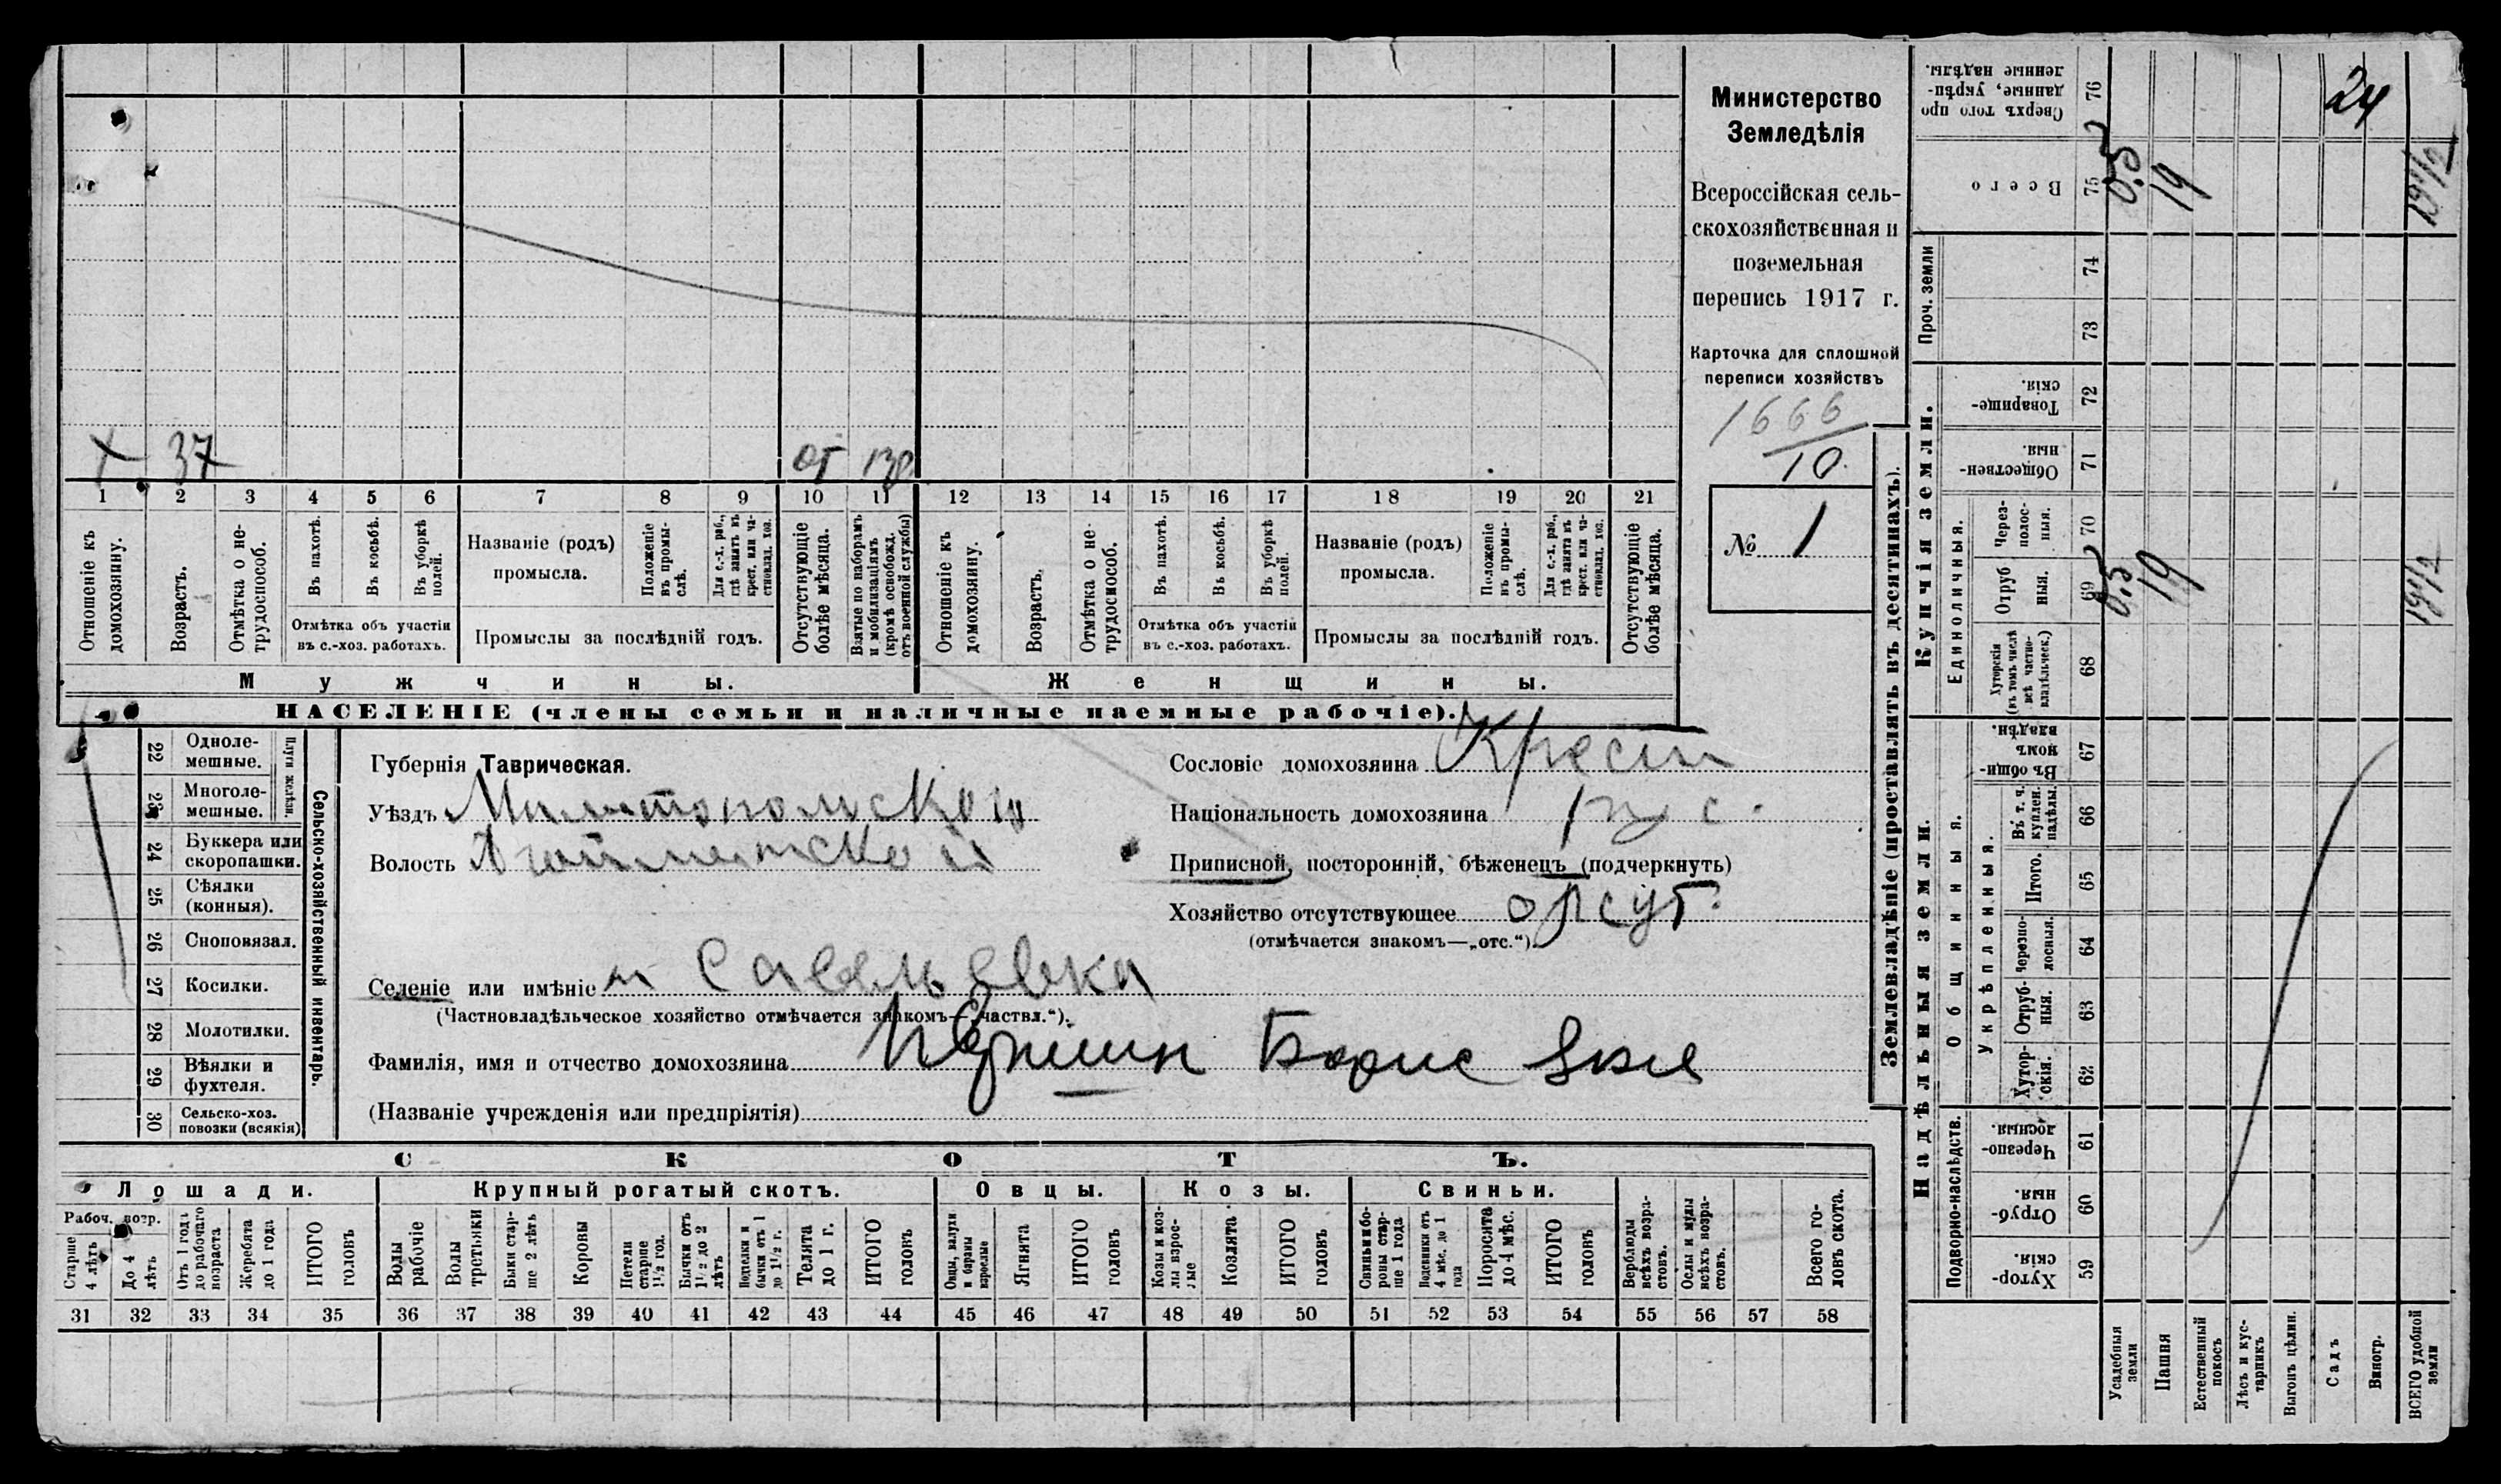 Министерство
Земледѣлія
Всероссійская сель-
скохозяйственная и
поземельная
перепись 1917 г.
Карточка для сплошной
переписи хозяйствъ
1666
10
№ 1
X 37 от
1 2 3 4 5 6 7 8 9 10 11 12 13 14 15 16 17 18 19 20 21
Отношеніе къ домохозяину.
Возрастъ.
Отмѣтка о не-трудоспособ.
Въ пахотѣ.
Въ косьбѣ.
Въ уборкѣ полей.
Отмѣтка объ участіи
въ с.-хоз. работахъ.
Названіе (родъ)
промысла.
Положеніе въ промы-слѣ.
Для с.-х. раб., гдѣ занятъ въ крест. или ча-стновлад. хоз.
Промыслы за послѣдній годъ.
Отсутствующіе болѣе мѣсяца.
Взятые по наборамъ и мобилизаціямъ (кромѣ освобожд. отъ военной службы)
Отношеніе къ домохозяину.
Возрастъ.
Отмѣтка о не-трудоспособ.
Въ пахотѣ.
Въ косьбѣ.
Въ уборкѣ полей.
Отмѣтка объ участіи
въ с.-хоз. работахъ.
Названіе (родъ)
промысла.
Положеніе въ промы-слѣ.
Для с.-х. раб., гдѣ занята въ крест. или ча-стновлад. хоз.
Промыслы за послѣдній годъ.
Отсутствующіе болѣе мѣсяца.
Мужчины.
Женщины.
НАСЕЛЕНІЕ (члены семьи и наличные наемные рабочіе).
22 Одноле-мешные.
23 Многоле-мешные.
Плуги желѣзн.
24 Буккера или скоропашки.
25 Сѣялки (конныя).
26 Сноповязал.
27 Косилки.
28 Молотилки.
29 Вѣялки и фухтеля.
30 Сельско-хоз. повозки (всякія)
Сельско-хозяйственный инвентарь.
Губернія Таврическая.
Уѣздъ
Волость
Селеніе или имѣніе Савельевка
(Частновладѣльческое хозяйство отмѣчается знакомъ—„частвл.“).
Фамилія, имя и отчество домохозяина Борис
(Названіе учрежденія или предпріятія)
Сословіе домохозяина Крест
Національность домохозяина
Приписной, посторонній, бѣженецъ (подчеркнуть)
Хозяйство отсутствующее отсут.
(отмѣчается знакомъ—„отс.“).
СКОТЪ.
Лошади.
Рабоч. возр.
Старше 4 лѣтъ
До 4 лѣтъ
Отъ 1 года до рабочаго возраста
Жеребята до 1 года
ИТОГО головъ
Крупный рогатый скотъ.
Волы рабочіе
Волы третьяки
Быки стар-ше 2 лѣтъ
Коровы
Нетели старше 1½ год.
Бычки отъ 1½ до 2 лѣтъ
Подтелки и бычки отъ 1 до 1½ г.
Телята до 1 г.
ИТОГО головъ
Овцы.
Овцы, валухи и бараны взрослые
Ягнята
ИТОГО головъ
Козы.
Козы и коз-лы взрос-лые
Козлята
ИТОГО головъ
Свиньи.
Свиньи и бо-ровы стар-ше 1 года
Подсвинки отъ 4 мѣс. до 1 года
Поросята до 4 мѣс.
ИТОГО головъ
Верблюды всѣхъ возра-стовъ.
Ослы и мулы всѣхъ возра-стовъ.
Всего го-ловъ скота.
31 32 33 34 35 36 37 38 39 40 41 42 43 44 45 46 47 48 49 50 51 52 53 54 55 56 57 58
Землевладѣніе (проставлять въ десятинахъ).
Надѣльныя земли.
Подворно-наслѣдств.
Хутор-скія. 59
Отруб-ныя. 60
Черезпо-лосныя. 61
Общинныя.
Укрѣпленныя.
Хутор-скія. 62
Отруб-ныя. 63
Черезпо-лосныя. 64
Итого. 65
Въ т. ч. куплен. надѣлы. 66
Въ общин-номъ владѣн. 67
Купчія земли.
Единоличныя.
Хуторскія (въ томъ числѣ всѣ частно-владѣльческ.) 68
Отруб ныя. 69
Через-полос-ныя. 70
Обществен-ныя. 71
Товарище-скія. 72
Проч. земли
73
74
Всего 75
Сверхъ того про данные, укрѣп-ленные надѣлы. 76
Усадебныя земли
Пашня
Естественный покосъ
Лѣсъ и кус-тарникъ
Выгонъ цѣлин.
Садъ
Виногр.
ВСЕГО удобной земли
0,5 19 19½
0,5 19 19½
24